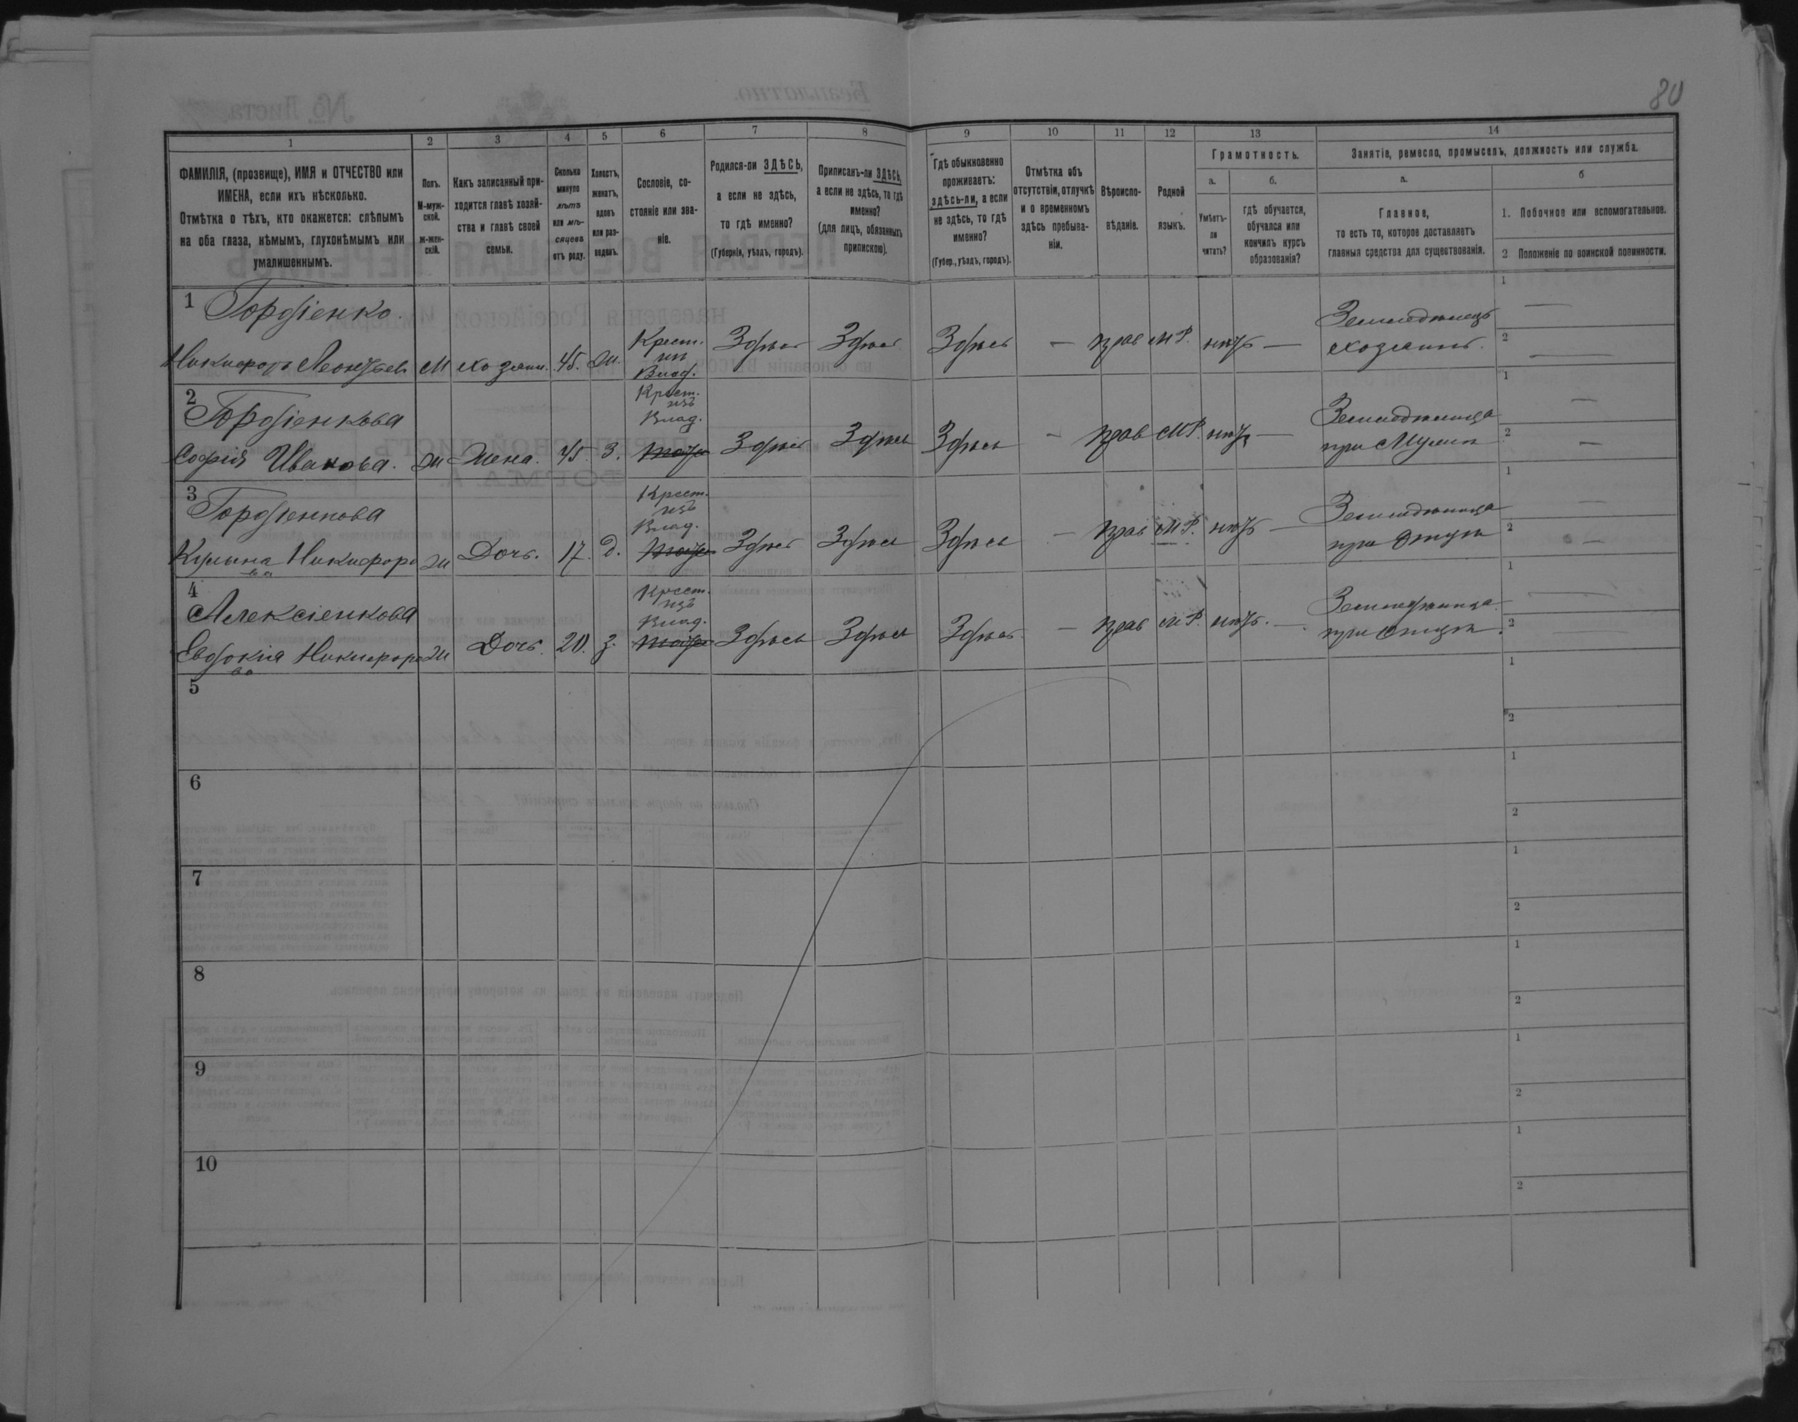 80
1 2 3 4 5 6 7 8 9 10 11 12 13 14
ФАМИЛІЯ, (прозвище), ИМЯ и ОТЧЕСТВО или
ИМЕНА, если ихъ нѣсколько.
Отмѣтка о тѣхъ, кто окажется: слѣпымъ
на оба глаза, нѣмымъ, глухонѣмымъ или
умалишеннымъ.
Полъ.
М-муж-
ской.
ж-жен-
скій.
Какъ записанный при-
ходится главѣ хозяй-
ства и главѣ своей
семьи.
Сколько
минуло
лѣтъ
или мѣ-
сяцевъ
отъ роду.
Холостъ,
женатъ,
вдовъ
или раз-
веденъ.
Сословіе, со-
стояніе или зва-
ніе.
Родился-ли ЗДѢСЬ,
а если не здѣсь,
то гдѣ именно?
(Губернія, уѣздъ, городъ).
Приписанъ-ли ЗДѢСЬ,
а если не здѣсь, то гдѣ
именно?
(для лицъ, обязанныхъ
припискою).
Гдѣ обыкновенно
проживаетъ:
здѣсь-ли, а если
не здѣсь, то гдѣ
именно?
(Губер., уѣздъ, городъ).
Отмѣтка объ
отсутствіи, отлучкѣ
и о временномъ
здѣсь пребыва-
ніи.
Вѣроиспо-
вѣданіе.
Родной
языкъ.
Грамотность.
а. б.
Умѣетъ-
ли
читать?
гдѣ обучается,
обучался или
кончилъ курсъ
образованія?
Занятія, ремесло, промыселъ, должность или служба.
а. б
Главное,
то есть то, которое доставляетъ
главныя средства для существованія.
1. Побочное или вспомогательное.
2 Положеніе по воинской повинности.
1 Гордіенко
Никифоръ Леонтьев М хозяин. 45. ж. Крест. из Влад. Здѣсь Здѣсь Здѣсь — прав М.Р. нѣтъ — Земледѣлецъ хозяинъ. 1 — 2 —
2 Гордіенкова
Софія Иванова. ж Жена. 45 З. Крест. изъ Влад. Здѣсь Здѣсь Здѣсь — прав М.Р. нѣтъ — Земледѣлица при Мужѣ 1 — 2 —
3 Гордіенкова
Кулына Никифорова ж Дочь. 17. д. Крест. изъ Влад. Здѣсь Здѣсь Здѣсь — прав М.Р. нѣтъ — Земледѣлица при Отцѣ 1 — 2 —
4 Алексіенкова
Евдокія Никифорова ж Дочь. 20. з. Крест. изъ Влад. Здѣсь Здѣсь Здѣсь — прав М.Р. нѣтъ. — Земледѣлица при Отцѣ. 1 — 2 —
5 1 2
6 1 2
7 1 2
8 1 2
9 1 2
10 1 2